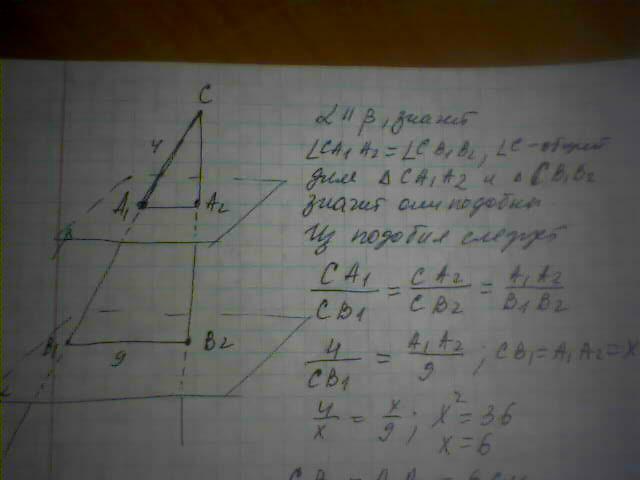 C
4
A₁
A₂
β
B₁
B₂
9
α
α || β, значит
∠CA₁A₂ = ∠CB₁B₂, ∠C - общий
для △CA₁A₂ и △CB₁B₂
значит они подобны
Из подобия следует
CA₁/CB₁ = CA₂/CB₂ = A₁A₂/B₁B₂
4/CB₁ = A₁A₂/9 ; CB₁ = A₁A₂ = x
4/x = x/9 ; x² = 36
x = 6